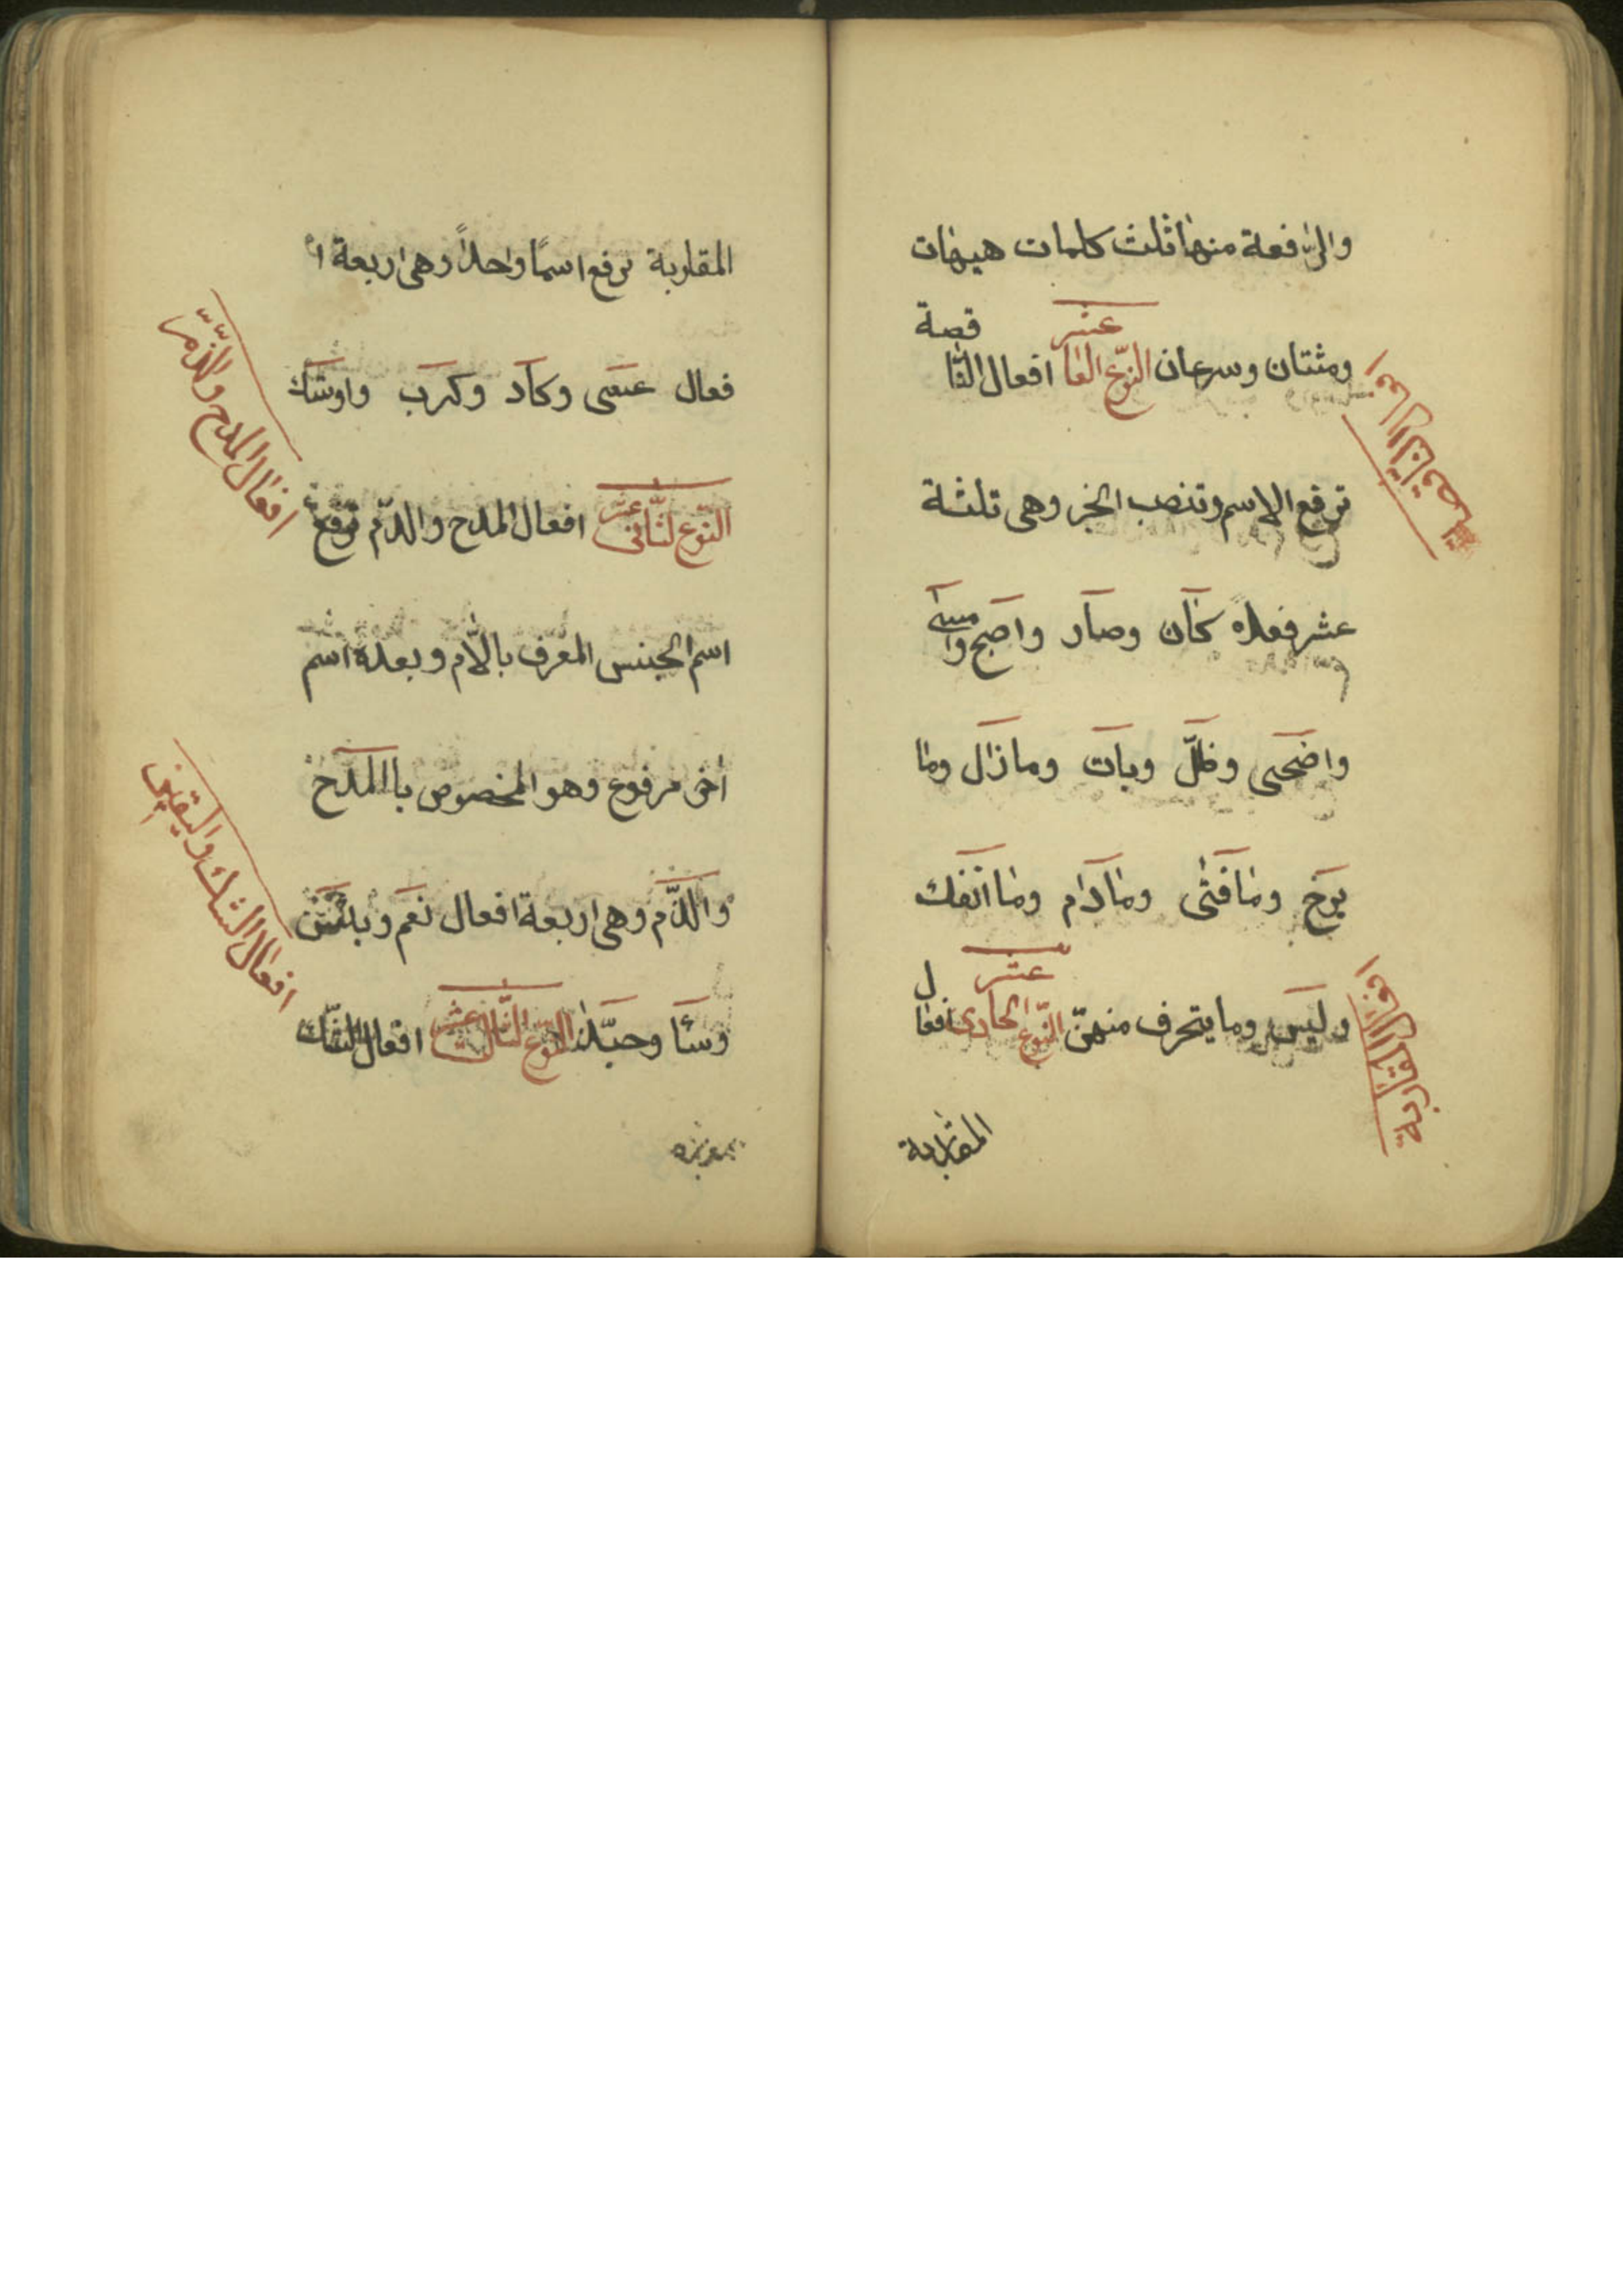 والرافعة منها ثلث كلمات هيهات
وشتان وسرعان النوع العا عشر افعال النا قصة
ترفع الاسم وتنصب الخبر وهي ثلثة
عشر فعلا كان وصار واصبح وامسى
واضحى وظلّ وبات وما زال وما
برح وما فتئ وما دام وما انفك
وليس وما يتصرف منهنّ النوع الحادى عشر افعال
المقاربة
افعال الناقصة
افعال المقاربة
المقاربة ترفع اسمًا واحدًا وهي اربعة ا
فعال عسى وكاد وكرب واوشك
النّوع الثّانى عشر افعال المدح والذّم ترفع
اسم الجنس المعرف بالّلام وبعده اسم
اخر مرفوع وهو المخصوص باالمدح
والذّم وهي اربعة افعال نعم وبئس
وساء وحبّذا النّوع الثّالث عشر افعال الشّك
افعال المدح والذّمّ
افعال الشك واليقين